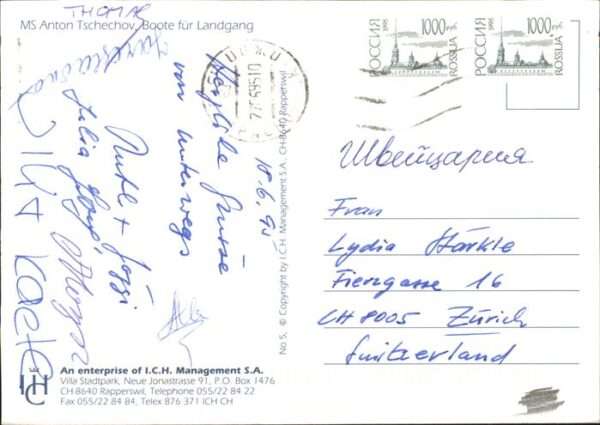 MS Anton Tschechov, Boote für Landgang
THOMAS
РОССИЯ
1995
1000 руб.
ROSSIJA
РОССИЯ
1995
1000 руб.
ROSSIJA
18.6.95
Herzliche Grüsse
von unterwegs
Ruth + Jöggi
Julia
No 5, © Copyright by I.C.H. Management S.A., CH-8640 Rapperswil
Швейцария
Frau
Lydia Stärkle
Fierzgasse 16
CH 8005 Zürich
Switzerland
ICH
An enterprise of I.C.H. Management S.A.
Villa Stadtpark, Neue Jonastrasse 91, P.O. Box 1476
CH-8640 Rapperswil, Telefon 055/22 84 22
Fax 055/22 84 84, Telex 876 371 ICH CH